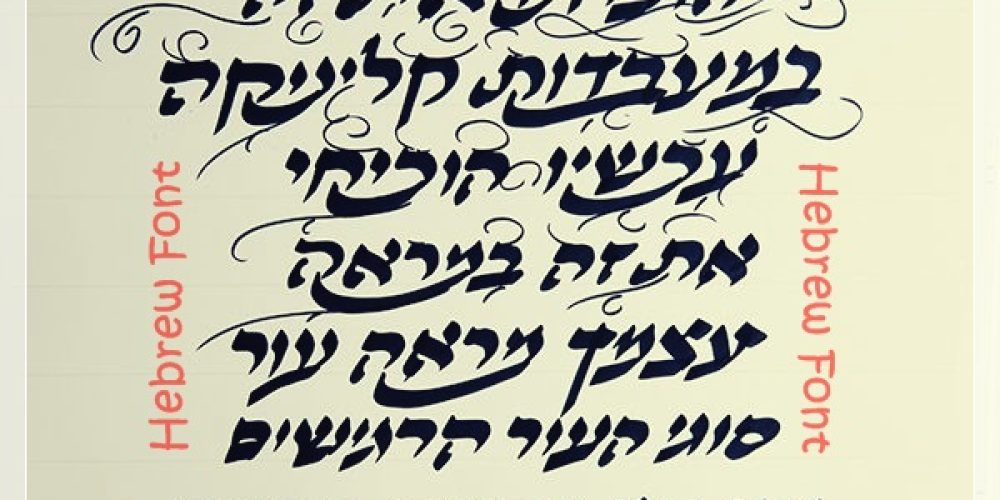 במעבדות קליניקה
עכשיו הוכיחי
את זה במראה
עצמך מראה עור
סוגי העור הרגישים
Hebrew Font
Hebrew Font